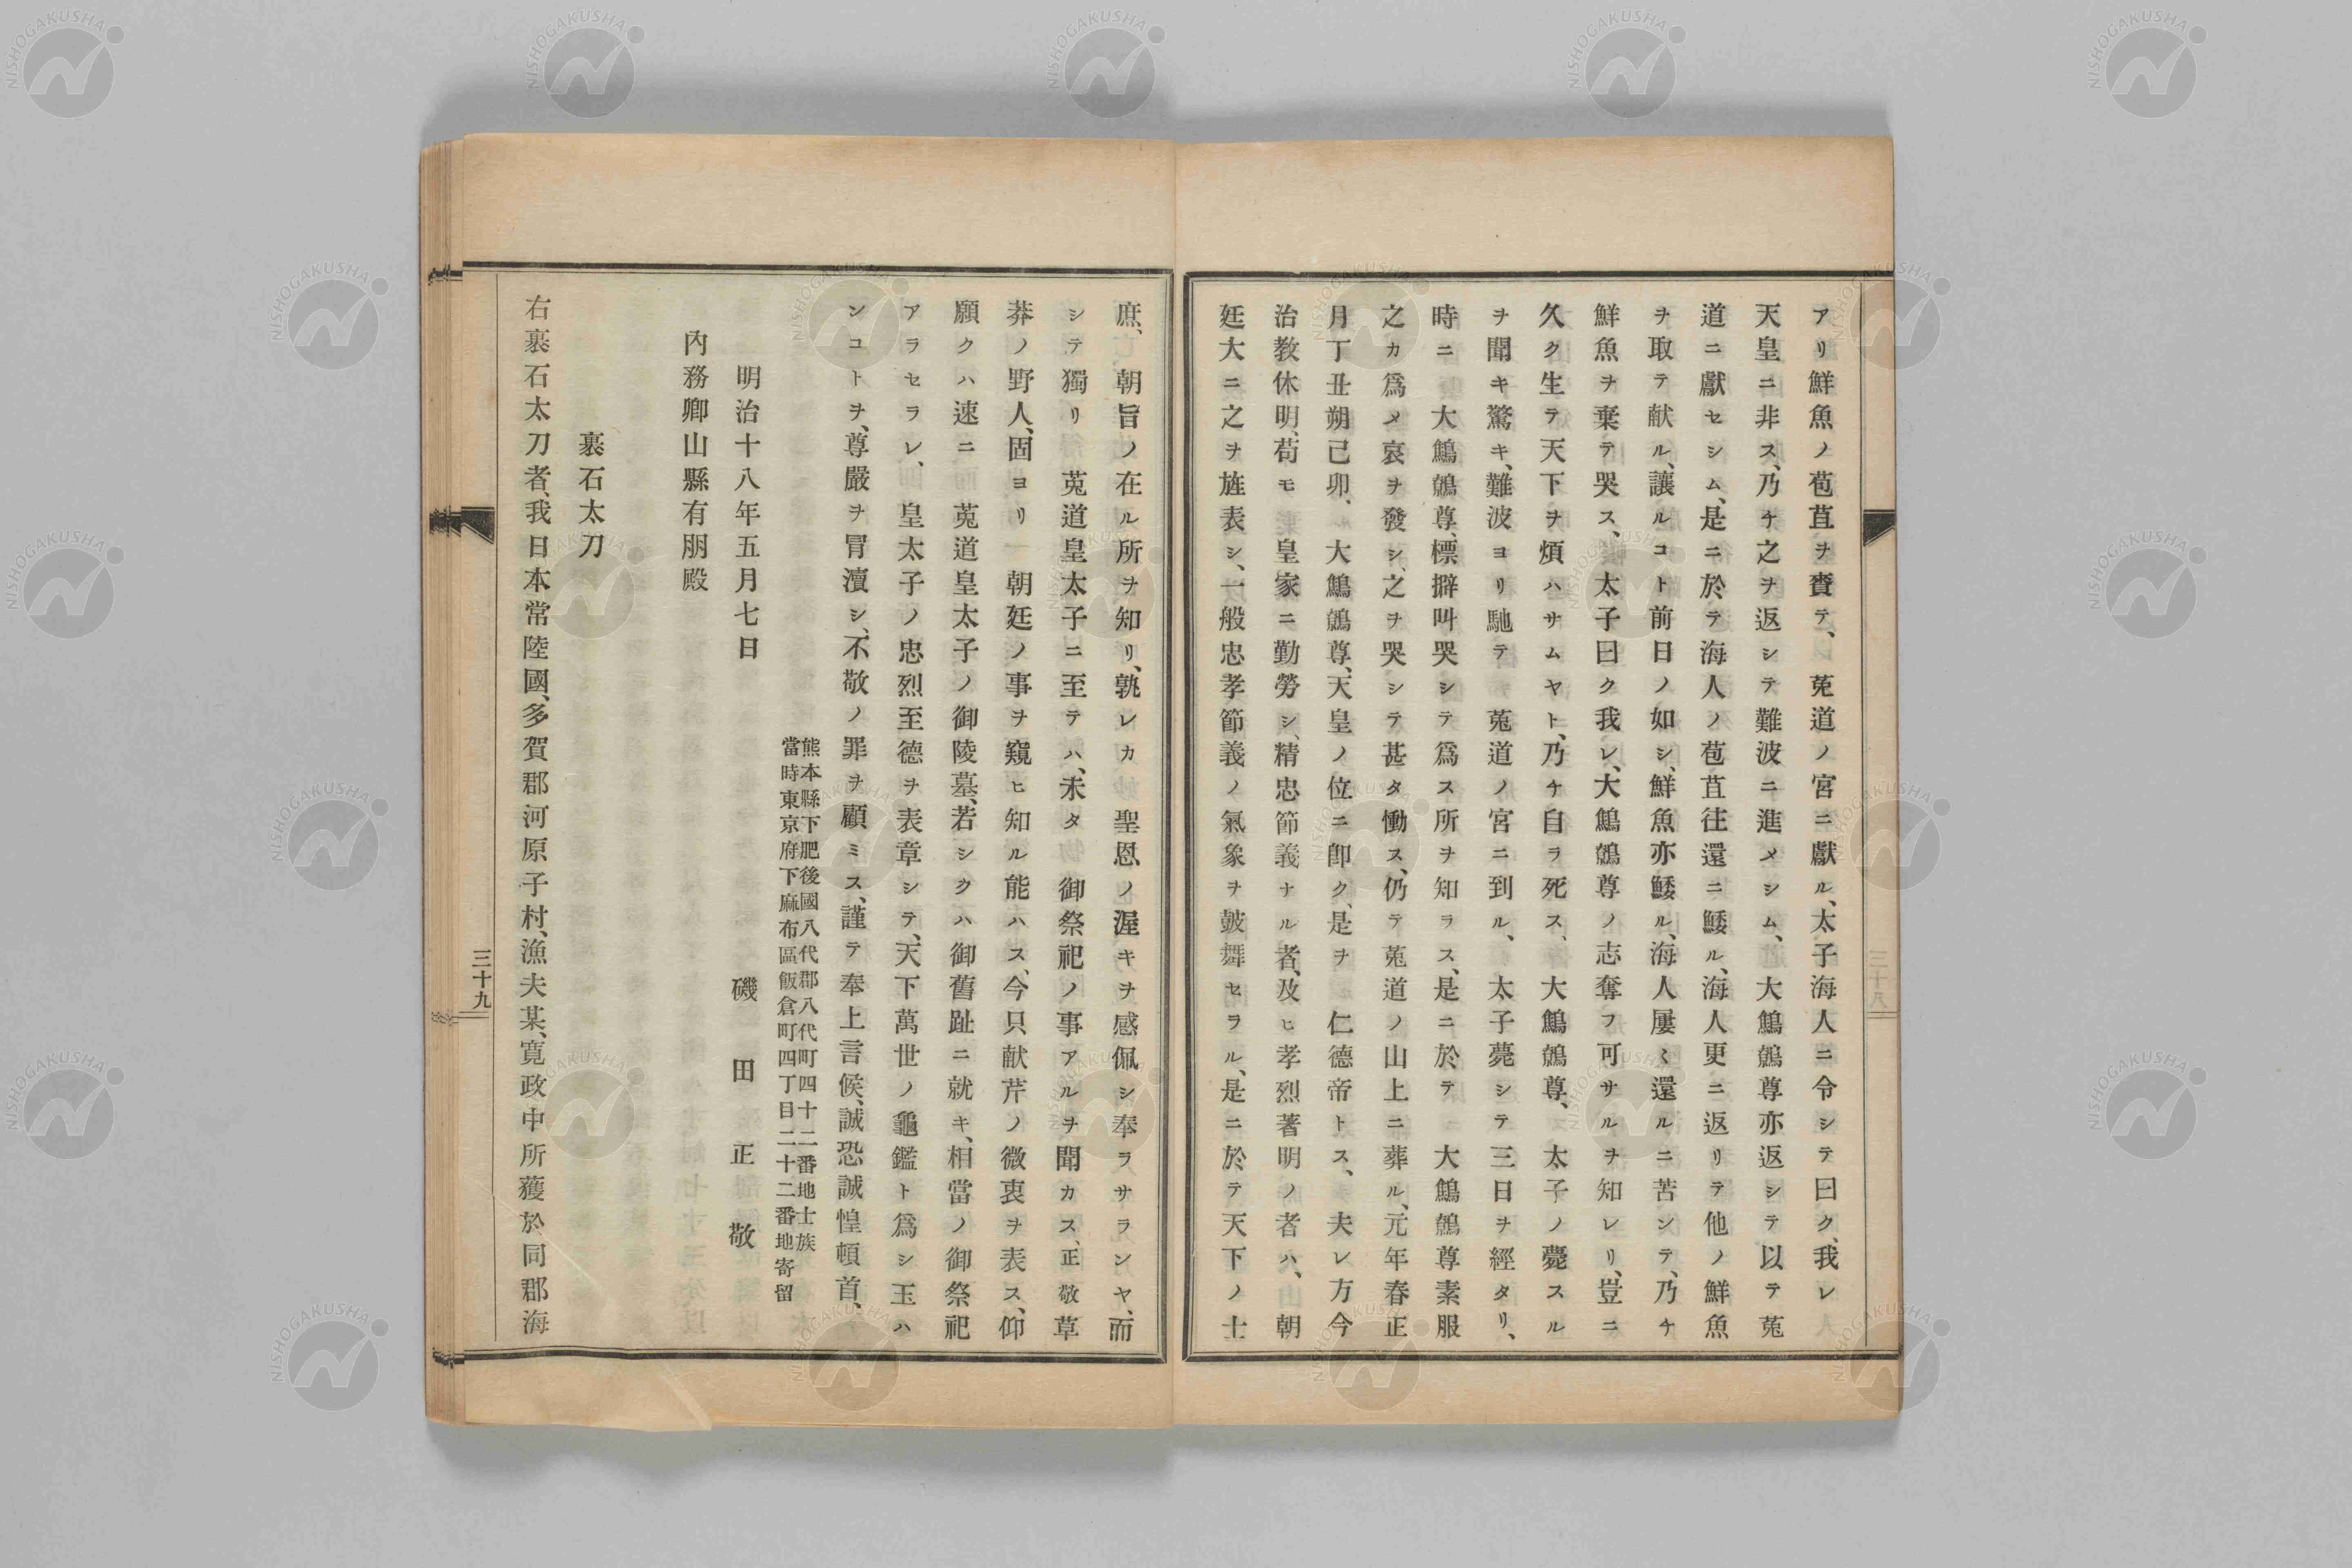 アリ鮮魚ノ苞苴ヲ賚テ、菟道ノ宮ニ獻ル、太子海人ニ令シテ曰ク、我レ
天皇ニ非ス、乃チ之ヲ返シテ難波ニ進メシム、大鷦鷯尊亦返シテ以テ菟
道ニ獻セシム、是ニ於テ海人ノ苞苴往還ニ鯘ル、海人更ニ返リテ他ノ鮮魚
ヲ取テ献ル、讓ルコト前日ノ如シ、鮮魚亦鯘ル、海人屢〻還ルニ苦シテ、乃チ
鮮魚ヲ棄テ哭ス、太子曰ク我レ、大鷦鷯尊ノ志奪フ可サルヲ知レリ、豈ニ
久ク生テ天下ヲ煩ハサムヤト、乃チ自ラ死ス、大鷦鷯尊、太子ノ薨スル
ヲ聞キ驚キ、難波ヨリ馳テ菟道ノ宮ニ到ル、太子薨シテ三日ヲ經タリ、
時ニ大鷦鷯尊、標擗叫哭シテ爲ス所ヲ知ラス、是ニ於テ大鷦鷯尊素服
之カ爲メ哀ヲ發シ、之ヲ哭シテ甚タ慟ス、仍テ菟道ノ山上ニ葬ル、元年春正
月丁丑朔己卯、大鷦鷯尊、天皇ノ位ニ卽ク、是ヲ仁德帝トス、夫レ方今
治敎休明、苟モ皇家ニ勤勞シ、精忠節義ナル者、及ヒ孝烈著明ノ者ハ、朝
廷大ニ之ヲ旌表シ、一般忠孝節義ノ氣象ヲ皷舞セラル、是ニ於テ天下ノ士
庶、朝旨ノ在ル所ヲ知リ、孰レカ聖恩ノ渥キヲ感佩シ奉ラサランヤ、而
シテ獨リ菟道皇太子ニ至テハ、未タ御祭祀ノ事アルヲ聞カス、正敬草
莽ノ野人、固ヨリ朝廷ノ事ヲ窺ヒ知ル能ハス、今只献芹ノ微衷ヲ表ス、仰
願クハ速ニ菟道皇太子ノ御陵墓、若シクハ御舊趾ニ就キ、相當ノ御祭祀
アラセラレ、皇太子ノ忠烈至德ヲ表章シテ、天下萬世ノ龜鑑ト爲シ玉ハ
ンコトヲ、尊嚴ヲ冐瀆シ、不敬ノ罪ヲ顧ミス、謹テ奉上言候、誠恐誠惶頓首、
熊本縣下肥後國八代郡八代町四十二番地士族
當時東京府下麻布區飯倉町四丁目二十二番地寄留
明治十八年五月七日　磯田正敬
內務卿山縣有朋殿
裹石太刀
右裹石太刀者、我日本常陸國、多賀郡河原子村、漁夫某、寛政中所獲於同郡海
三十九
三十八